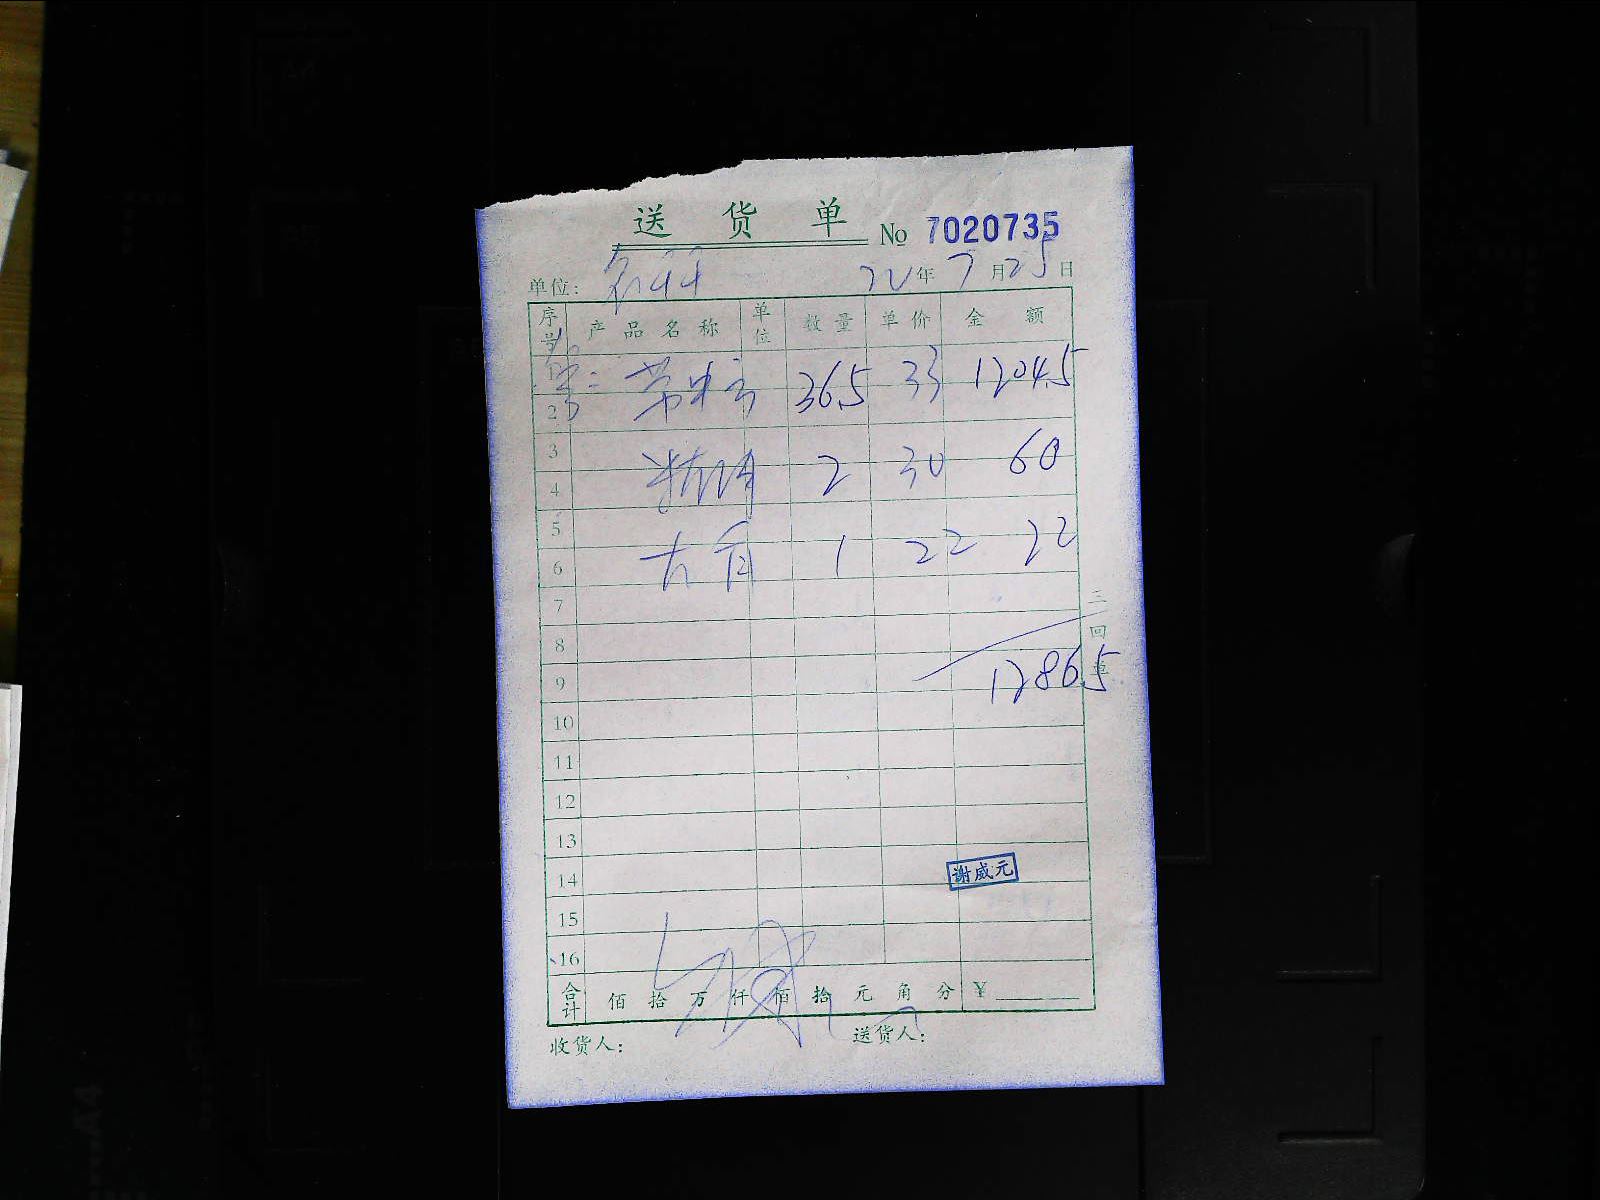 送 货 单 No 7020735
单位: 22年 7月25日
序号 产品名称 单位 数量 单价 金额
1 36.5 33 1204.5
2
3
4 精肉 2 30 60
5
6 大骨 1 22 22
7
8
9 1286.5
10
11
12
13
14 谢威元
15
16
合计 佰 拾 万 仟 佰 拾 元 角 分 ¥
收货人: 送货人:
三回单